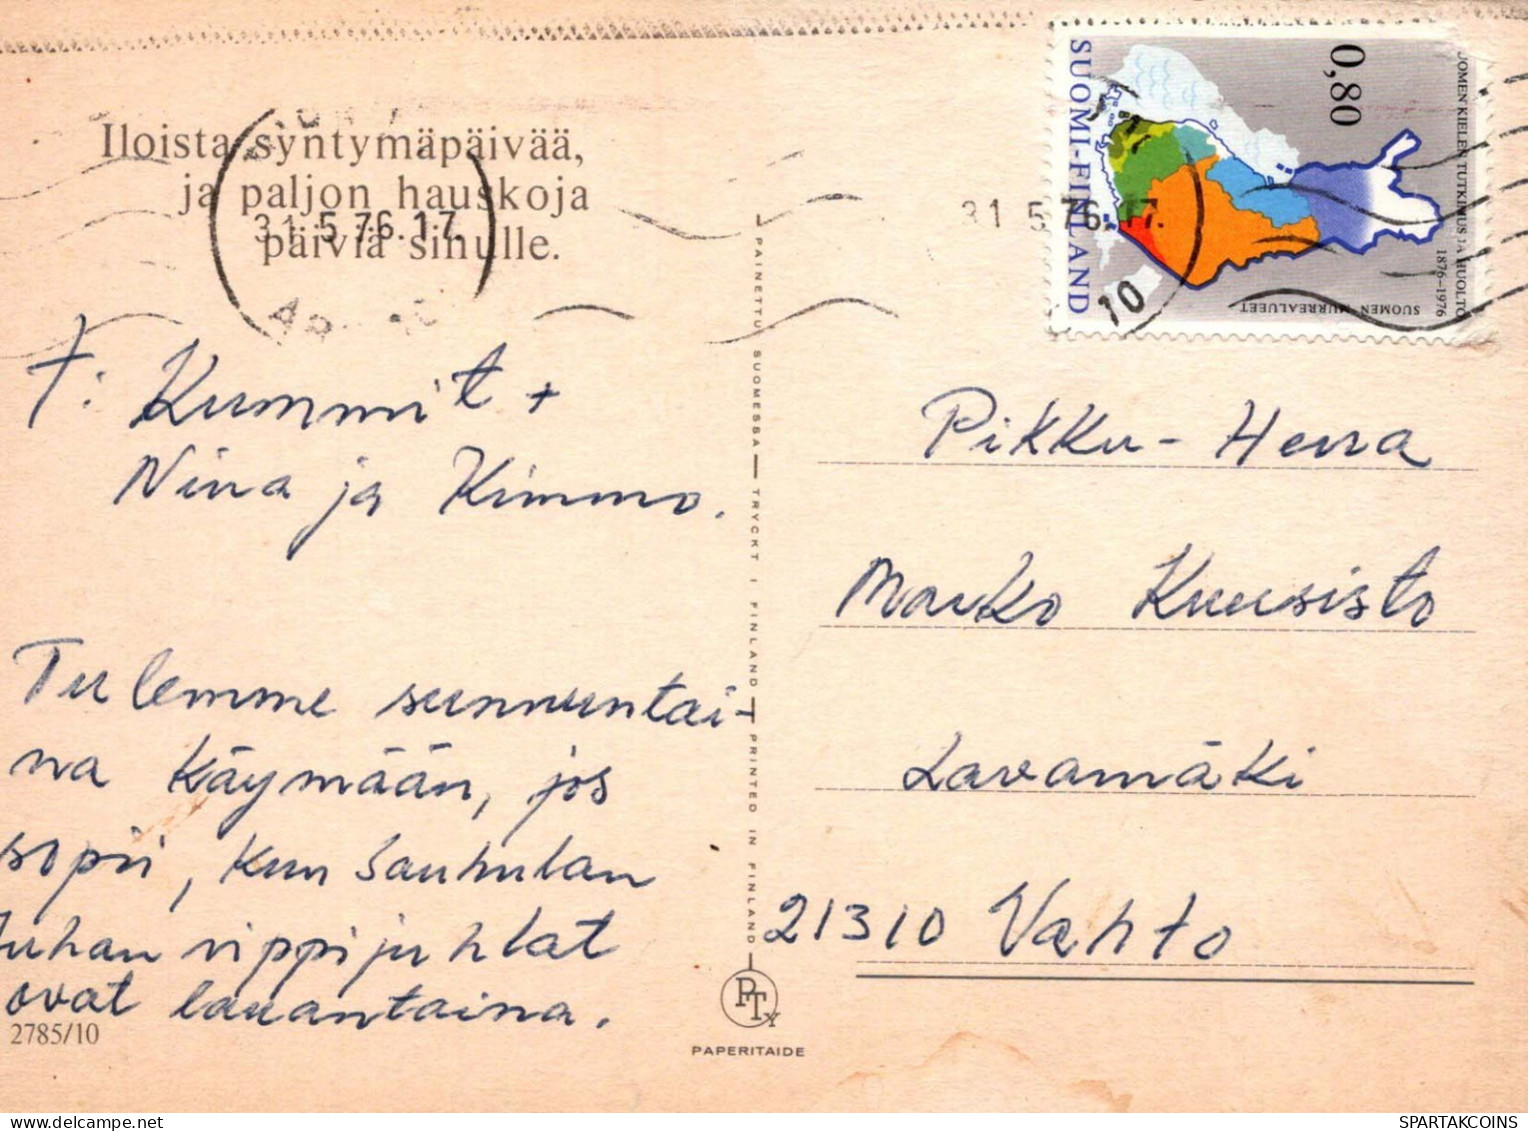 Iloista syntymäpäivää,
ja paljon hauskoja
päiviä sinulle.
31.5.76.17.
T: Kummit +
Nina ja Kimmo.
Tulemme sunnuntai-
na käymään, jos
sopii, kun Sauhulan
Juhan rippijuhlat
ovat lauantaina.
2785/10
PAINETTU SUOMESSA — TRYCKT I FINLAND — PRINTED IN FINLAND
PTy
PAPERITAIDE
31 5 76.17.
10
SUOMI-FINLAND
0,80
SUOMEN MURREALUEET
1876–1976
UOMEN KIELEN TUTKIMUS JA HUOLTO
Pikku-Herra
Marko Kuusisto
Lavamäki
21310 Vahto
SPARTAKCOINS.COM